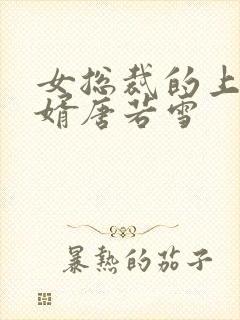 女总裁的上
婿唐若雪
暴熱的茄子